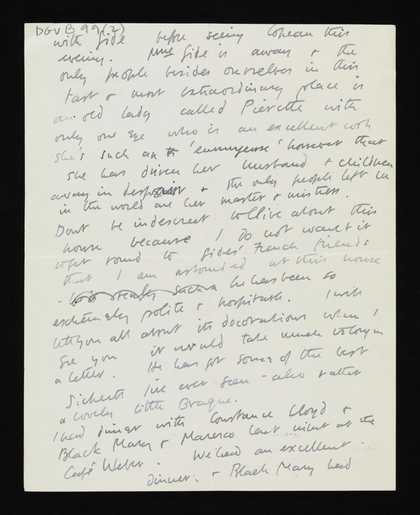 DGV B 99 (2)
with Gide before seeing Copeau this
evening. Mme Gide is away & the
only people besides ourselves in this
vast & most extraordinary place is
an old lady called Pierette with
only one eye who is an excellent cook
she's such an 'ennuyeuse' however that
she has driven her husband & children
away in despair & the only people left her
in the world are her master & mistress.
Dont be indescreet to Clive about this
house because I do not want it
to get round to Gides' French friends
that I am astounded at this house
- he has been so
extremely polite & hospitable. I will
tell you all about its decorations when I
see you it would take much to long in
a letter. He has got some of the best
Sickerts I've ever seen - also rather
a lovely little Braque.
I had dinner with Constance Lloyd &
Black Mary & Maresco last night at the
Café Weber. We had an excellent
dinner. & Black Mary had